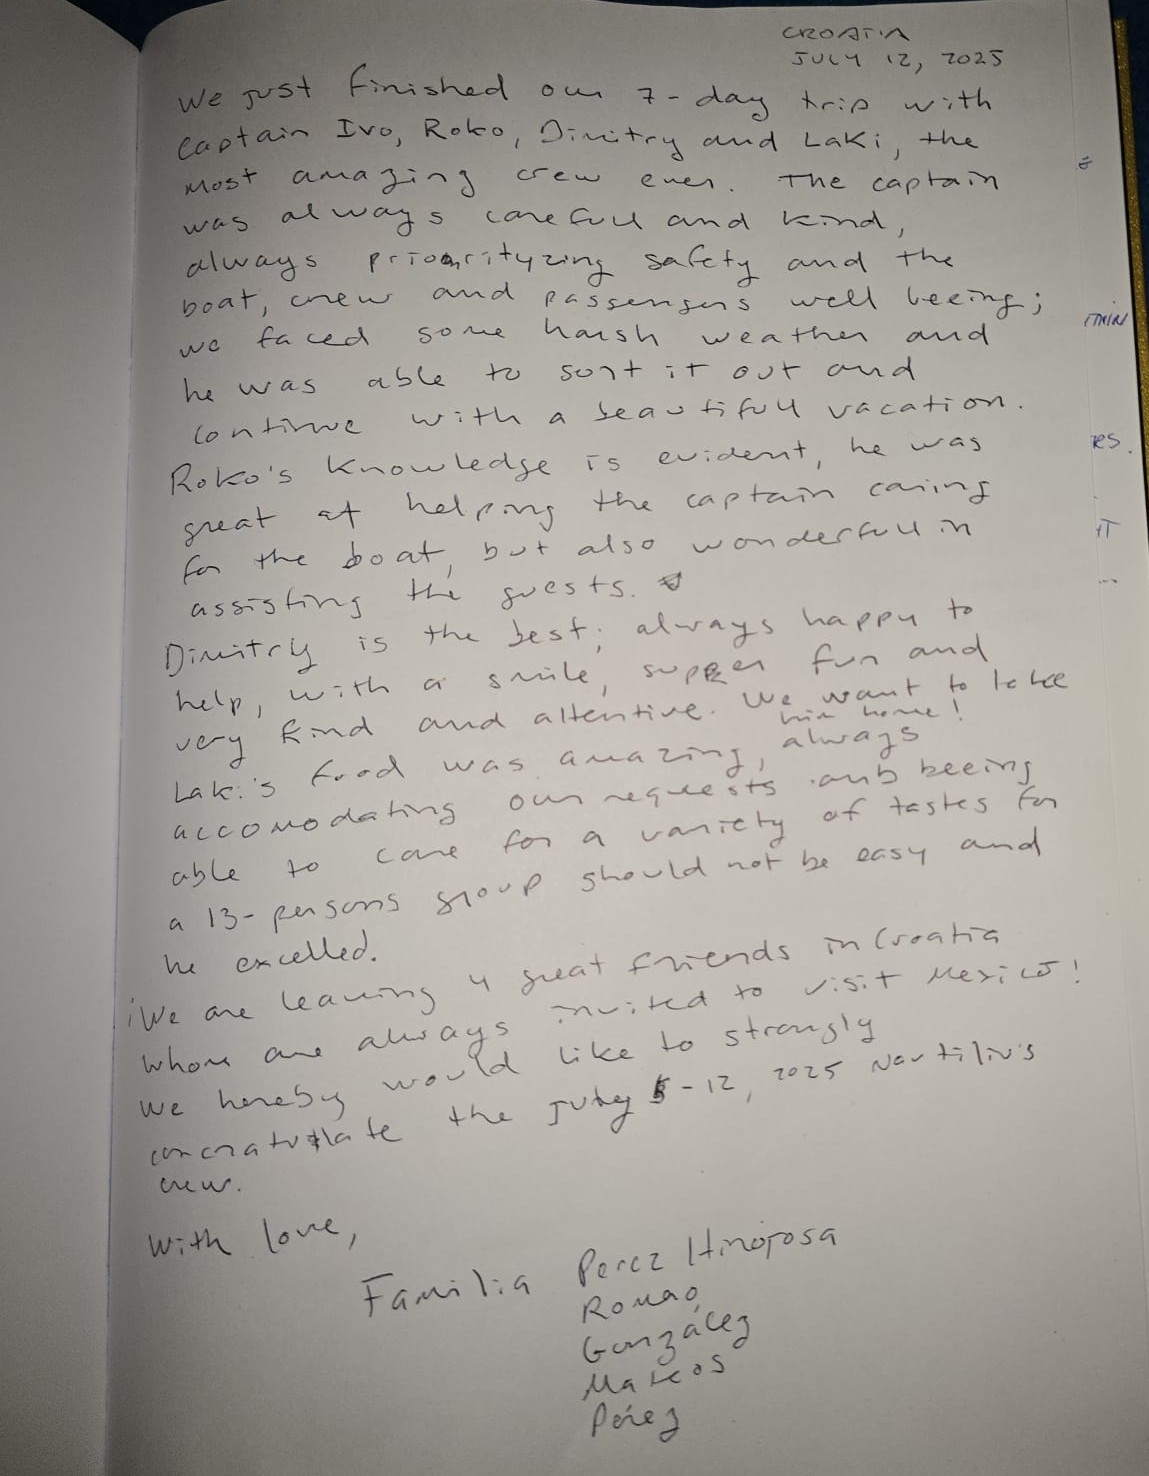 CROATIA
JULY 12, 2025
We just finished our 7-day trip with
Captain Ivo, Roko, Dimitry and Laki, the
most amazing crew ever. The captain
was always carefull and kind,
always priorityzing safety and the
boat, crew and passengers well beeing;
we faced some harsh weather and
he was able to sort it out and
continue with a beautifull vacation.
Roko's knowledge is evident, he was
great at helping the captain caring
for the boat, but also wonderfull in
assisting the guests.
Dimitry is the best; always happy to
help, with a smile, super fun and
very kind and attentive. We want to take
him home!
Laki's food was amazing, always
accomodating our requests and beeing
able to care for a variety of tastes for
a 13-persons group should not be easy and
he excelled.
¡We are leaving 4 great friends in Croatia
whom are always invited to visit Mexico!
We hereby would like to strongly
congratulate the july 5-12, 2025 Nautilius
crew.
With love,
Familia Perez Hinojosa
Romao
González
Mateos
Pérez
É
ITMIN
RS.
IT
...